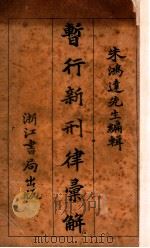 朱鴻達先生編輯
暫行新刑律彙解
浙江書局出版